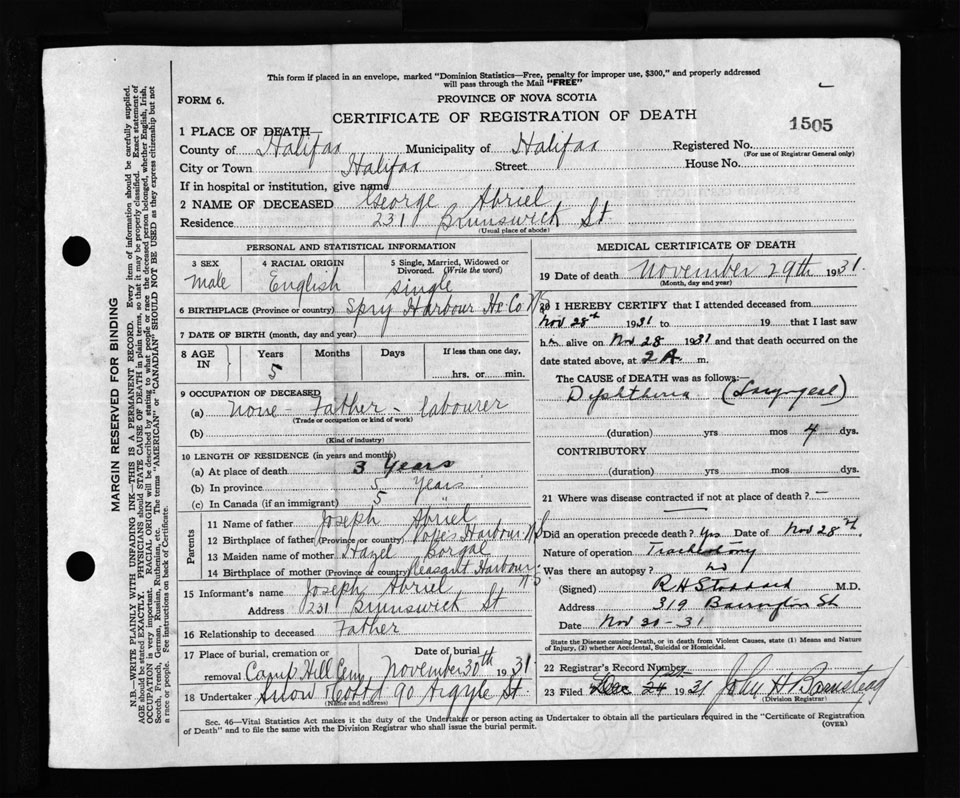 This form if placed in an envelope, marked "Dominion Statistics—Free, penalty for improper use, $300," and properly addressed
will pass through the Mail "FREE"
FORM 6.
PROVINCE OF NOVA SCOTIA
CERTIFICATE OF REGISTRATION OF DEATH
1505
1 PLACE OF DEATH—
County of Halifax Municipality of Halifax Registered No.
(For use of Registrar General only)
City or Town Halifax Street House No.
If in hospital or institution, give name
2 NAME OF DECEASED George Abriel
Residence 231 Brunswick St
(Usual place of abode)
PERSONAL AND STATISTICAL INFORMATION
3 SEX 4 RACIAL ORIGIN 5 Single, Married, Widowed or
Divorced. (Write the word)
Male English single
6 BIRTHPLACE (Province or country) Spry Harbour Hx Co NS
7 DATE OF BIRTH (month, day and year)
8 AGE IN Years Months Days If less than one day,
5 hrs. or min.
9 OCCUPATION OF DECEASED
(a) None - Father - labourer
(Trade or occupation or kind of work)
(b)
(Kind of industry)
10 LENGTH OF RESIDENCE (in years and months)
(a) At place of death 3 Years
(b) In province 5 Years
(c) In Canada (if an immigrant) 5 "
Parents
11 Name of father Joseph Abriel
12 Birthplace of father (Province or country) Harbour NS
13 Maiden name of mother Hazel Borgal
14 Birthplace of mother (Province or country) Pleasant Harbour NS
15 Informant's name Joseph Abriel
Address 231 Brunswick St
16 Relationship to deceased Father
17 Place of burial, cremation or Date of burial
removal Camp Hill Cem November 30th 1931
18 Undertaker Snow & Co Ltd 90 Argyle St.
(Name and address)
MEDICAL CERTIFICATE OF DEATH
19 Date of death November 29th 1931.
(Month, day and year)
20 I HEREBY CERTIFY that I attended deceased from
Nov 28th 1931 to 19 that I last saw
him alive on Nov 28 1931 and that death occurred on the
date stated above, at 2 A m.
The CAUSE OF DEATH was as follows:—
Diphtheria (Laryngeal)
(duration) yrs mos 4 dys.
CONTRIBUTORY
(duration) yrs mos dys.
21 Where was disease contracted if not at place of death? —
Did an operation precede death? Yes Date of Nov 28th
Nature of operation Tracheotomy
Was there an autopsy? no
(Signed) R H Stoddard M.D.
Address 319 Barrington St
Date Nov 30-31
State the Disease causing Death, or in death from Violent Causes, state (1) Means and Nature
of Injury, (2) whether Accidental, Suicidal or Homicidal.
22 Registrar's Record Number
23 Filed Dec 24 1931 John H Barnstead
(Division Registrar)
Sec. 46—Vital Statistics Act makes it the duty of the Undertaker or person acting as Undertaker to obtain all the particulars required in the "Certificate of Registration
of Death" and to file the same with the Division Registrar who shall issue the burial permit.
(OVER)
MARGIN RESERVED FOR BINDING
N.B.—WRITE PLAINLY WITH UNFADING INK—THIS IS A PERMANENT RECORD. Every item of information should be carefully supplied.
AGE should be stated EXACTLY. PHYSICIANS should STATE CAUSE OF DEATH in plain terms, so that it may be properly classified. Exact statement of
OCCUPATION is very important. RACIAL ORIGIN will be described by stating to what people or race the deceased person belonged, whether English, Irish,
Scotch, French, German, Russian, Ruthenian, etc. The terms "AMERICAN" or "CANADIAN" SHOULD NOT BE USED as they express citizenship but not
a race or people. See instructions on back of Certificate.